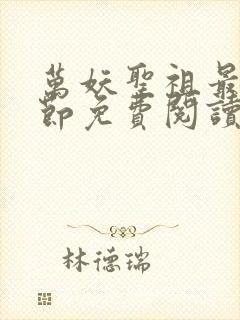 萬妖聖祖最
節免費閱讀
林德瑞